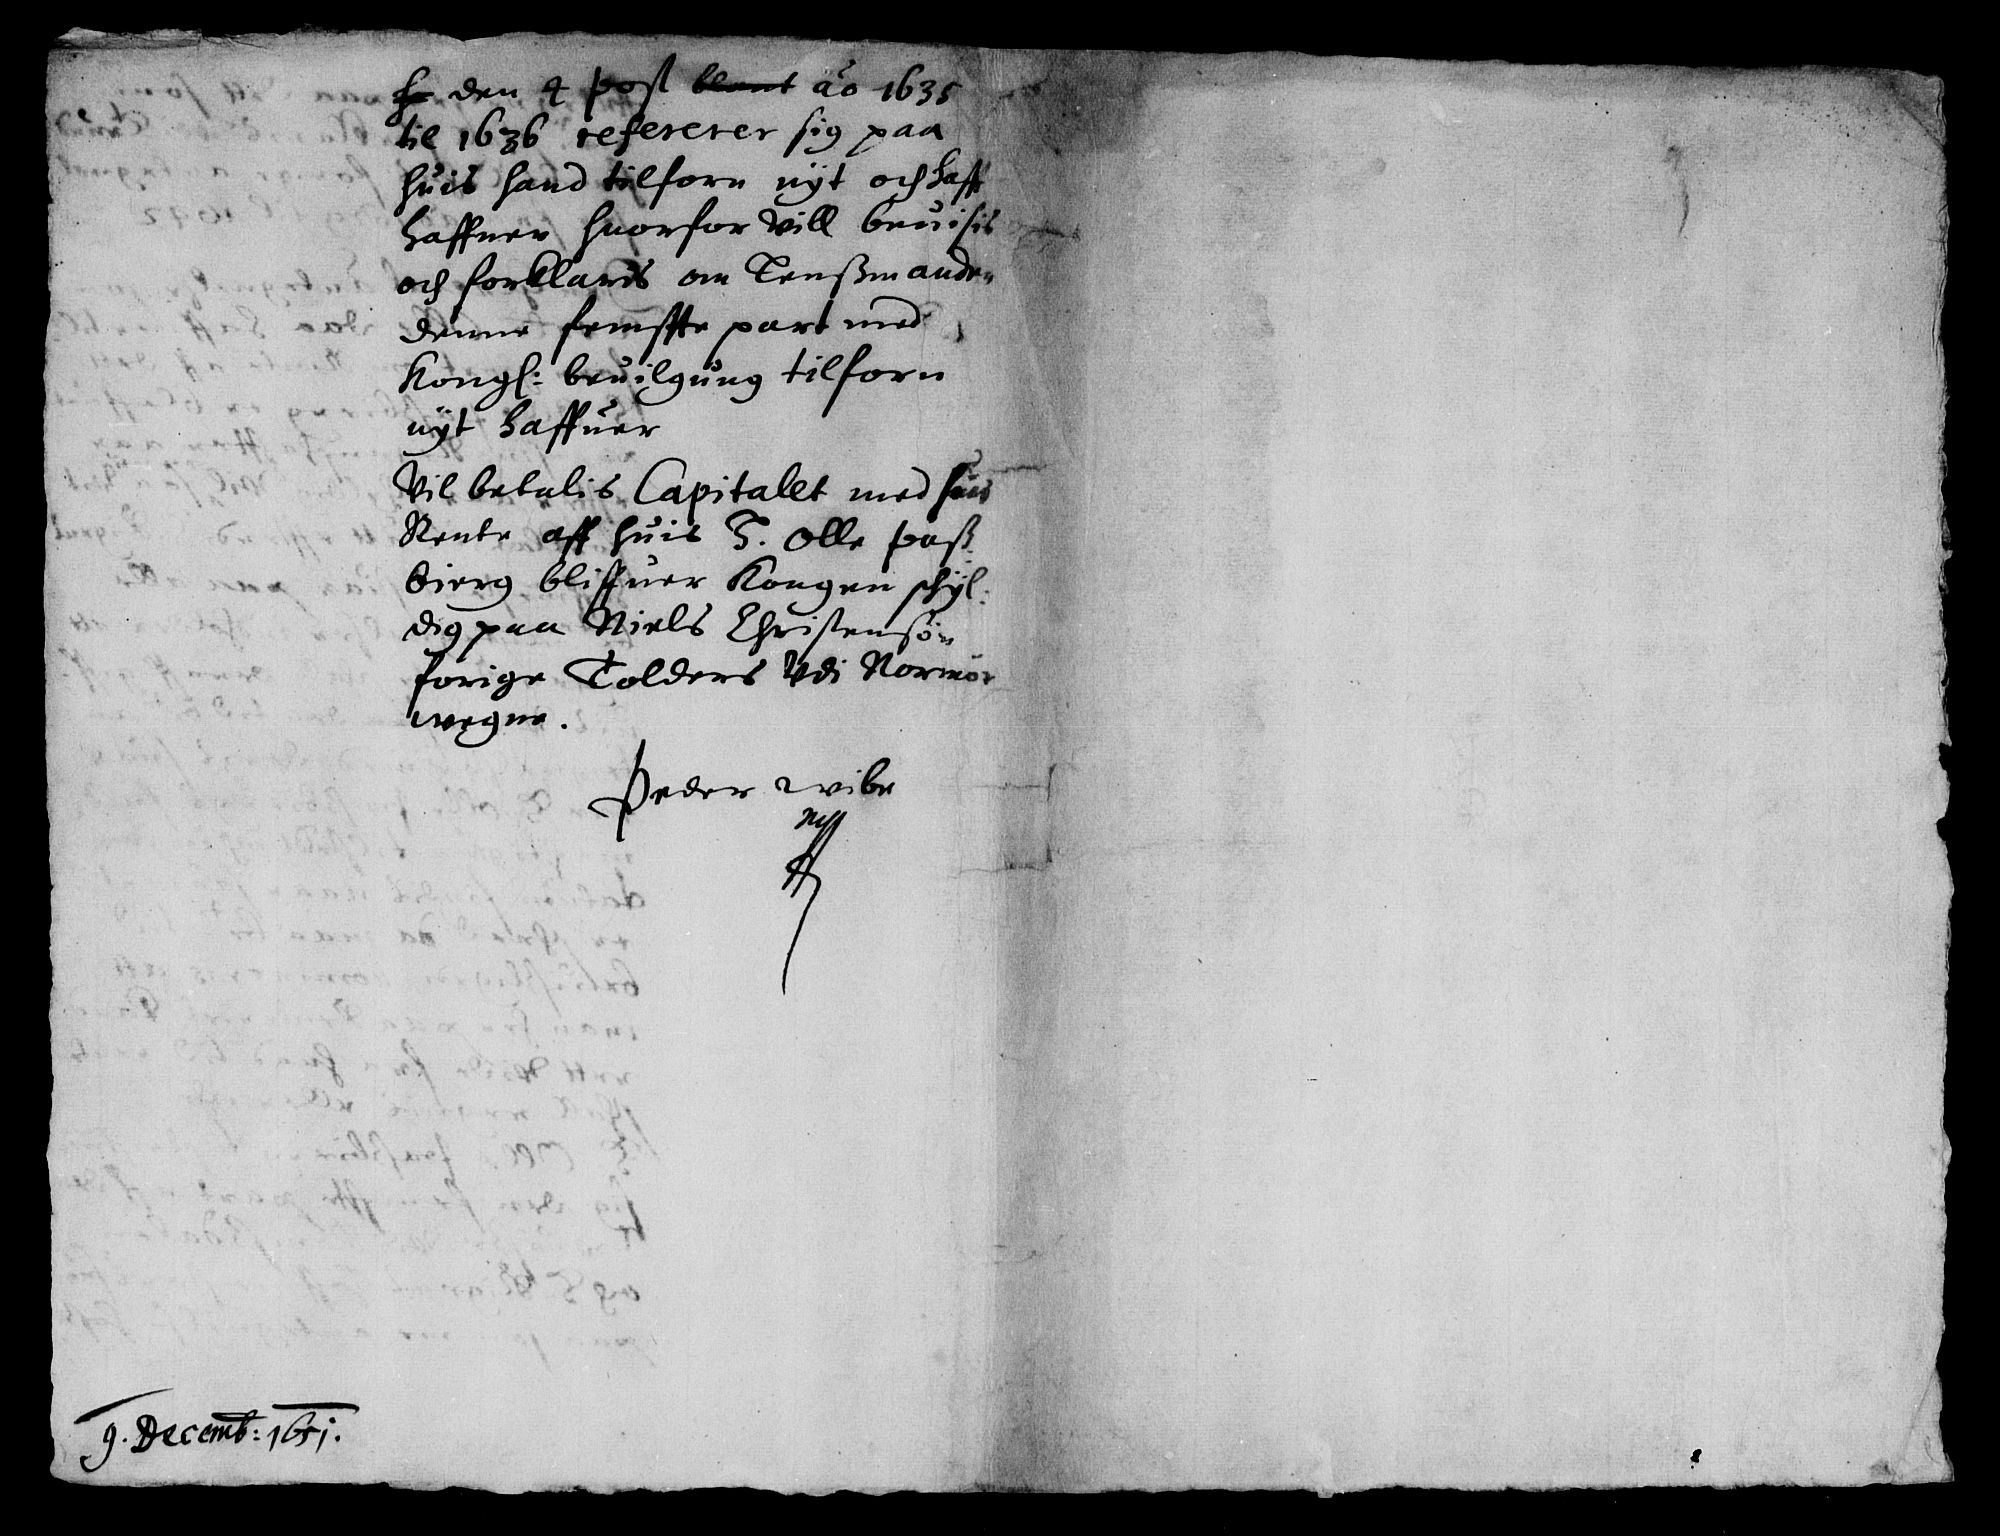 den 4 post blant ao 1635
til 1636 refererer sig paa
huis hand tilforn nÿt och haff
haffuer huorfor vill beuisis
och forklaris om Lenßmanden
denne femffte part med
Kongl: beuilgung tilforn
nÿt haffuer
Vil betalis Capitalet med sin
Rente aff huis S. Olle paß
bierg bliffuer Kongen schÿl:
dig paa Niels Christensøn
forige Tolders Vdi Normør
wegne.
Peder wibe
9. Decemb: 1651.